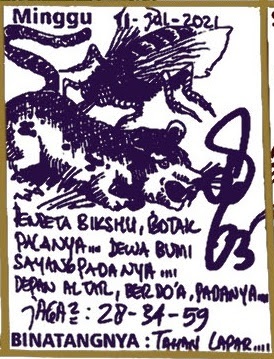 Minggu 11-JUL-2021
PENDETA BIKSHU, BOTAK
PALANYA... DEWA BUMI
SAYANG PADANYA....
DEPAN ALTAR, BERDO'A, PADANYA...
JAGA2 : 28-34-59
BINATANGNYA : TAHAN LAPAR....